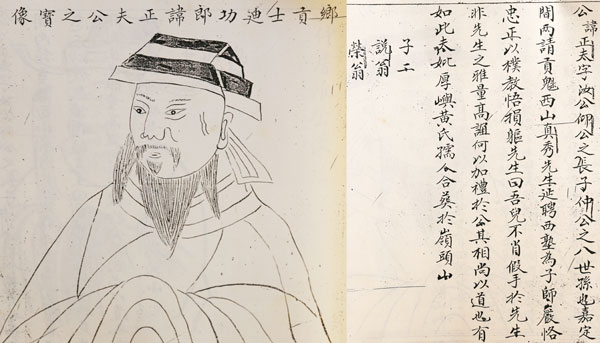 公諱正太字汝公仰公之長子仲公之八世孫也嘉定
閩两請貢魁西山真秀先生延聘西塾為子師嚴恪
忠正以樸教悟損軀先生曰吾兒不肖假手於先生
非先生之雅量高誼何以加禮於公其相尚以道也有
如此 妣厚嶼黄氏孺人合葬於嶺頭山
子二
說翁
榮翁
鄉貢士迪功郎諱正夫公之寶像